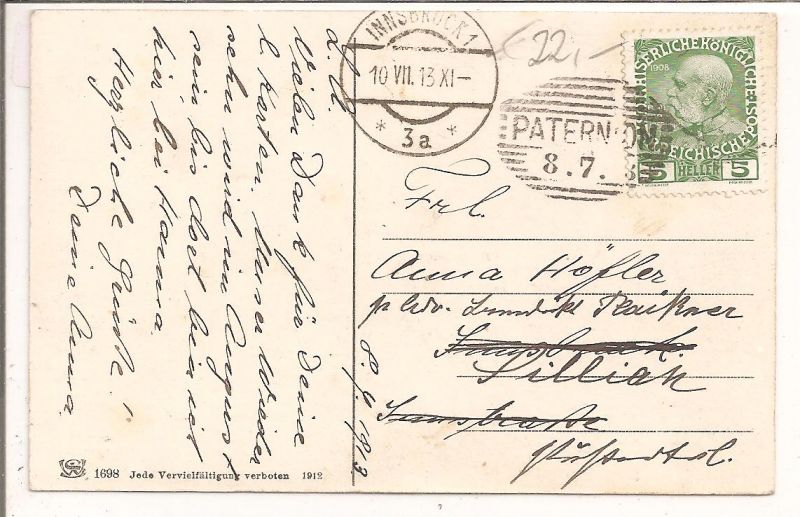 L. A.
Vielen Dank für Deine
l. Karten. Unser Wieder
sehn wird im August
sein bis dort bin ich
hier bei Hanna.
Herzliche Grüße!
Deine Anna
8. 7. 1913
INNSBRUCK 1
10 VII. 13 XI-
* 3a *
22,-
PATERNION
8. 7.
KAISERLICHE KÖNIGLICHE ÖSTERREICHISCHE POST
1908
5 HELLER 5
Frl.
Anna Höfler
Innsbruck.
Sillian
Innstraße
Pustertal.
1698 Jede Vervielfältigung verboten 1912